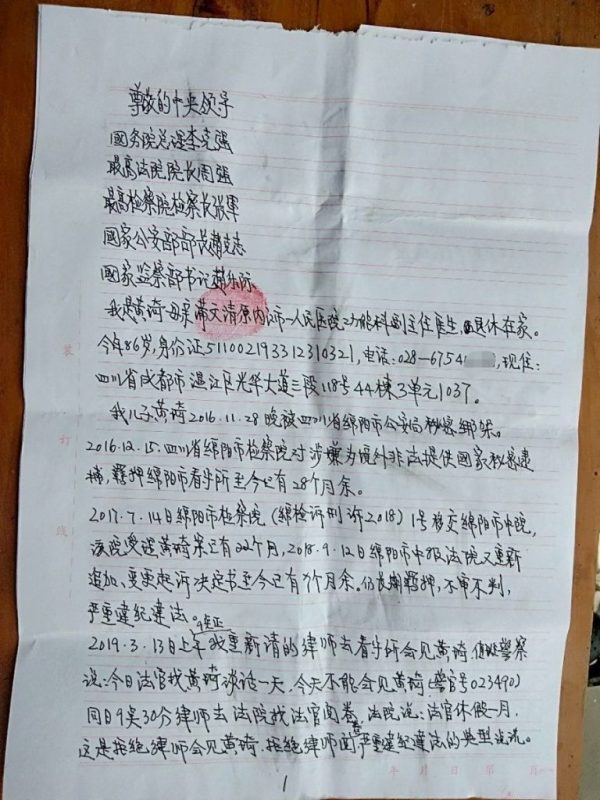 尊敬的中央领导
國务院总理李克强
最高法院院长周强
最高检察院检察长張軍
國家公安部部长趙克志
國家监察部书记趙乐际
我是黄琦母亲蒲文清原内江市一人民医院功能科副主任医生，退休在家。
今年86岁，身份证511002193312310321，电话：028-6754，现住：
四川省成都市温江区光华大道三段118号44栋3单元1037。
我儿子黄琦2016.11.28晚被四川省绵阳市公安局秘密绑架。
2016.12.15.四川省绵阳市检察院对涉嫌为境外非法提供國家秘密逮
捕，羁押绵阳市看守所至今已有28个月余。
2017.7.14日绵阳市检察院（绵检诉刑诉2018）1号移交绵阳市中院，
该院受理黄琦案已有22个月，2018.9.12日绵阳市中级法院又重新
追加、变更起诉决定书至今已有7个月余。仍长期羁押，不审不判，
严重違纪違法。
2019.3.13日上午9点正我重新请的律师去看守所会见黄琦，值班警察
说：今日法官找黄琦谈话一天，今天不能会见黄琦（警官号023490）
同日9点30分律师去法院找法官阅卷，法院说：法官休假一月，
这是拒绝律师会见黄琦，拒绝律师阅卷严重違纪違法的典型说法。
1
装
订
线
年 月 日 第 页